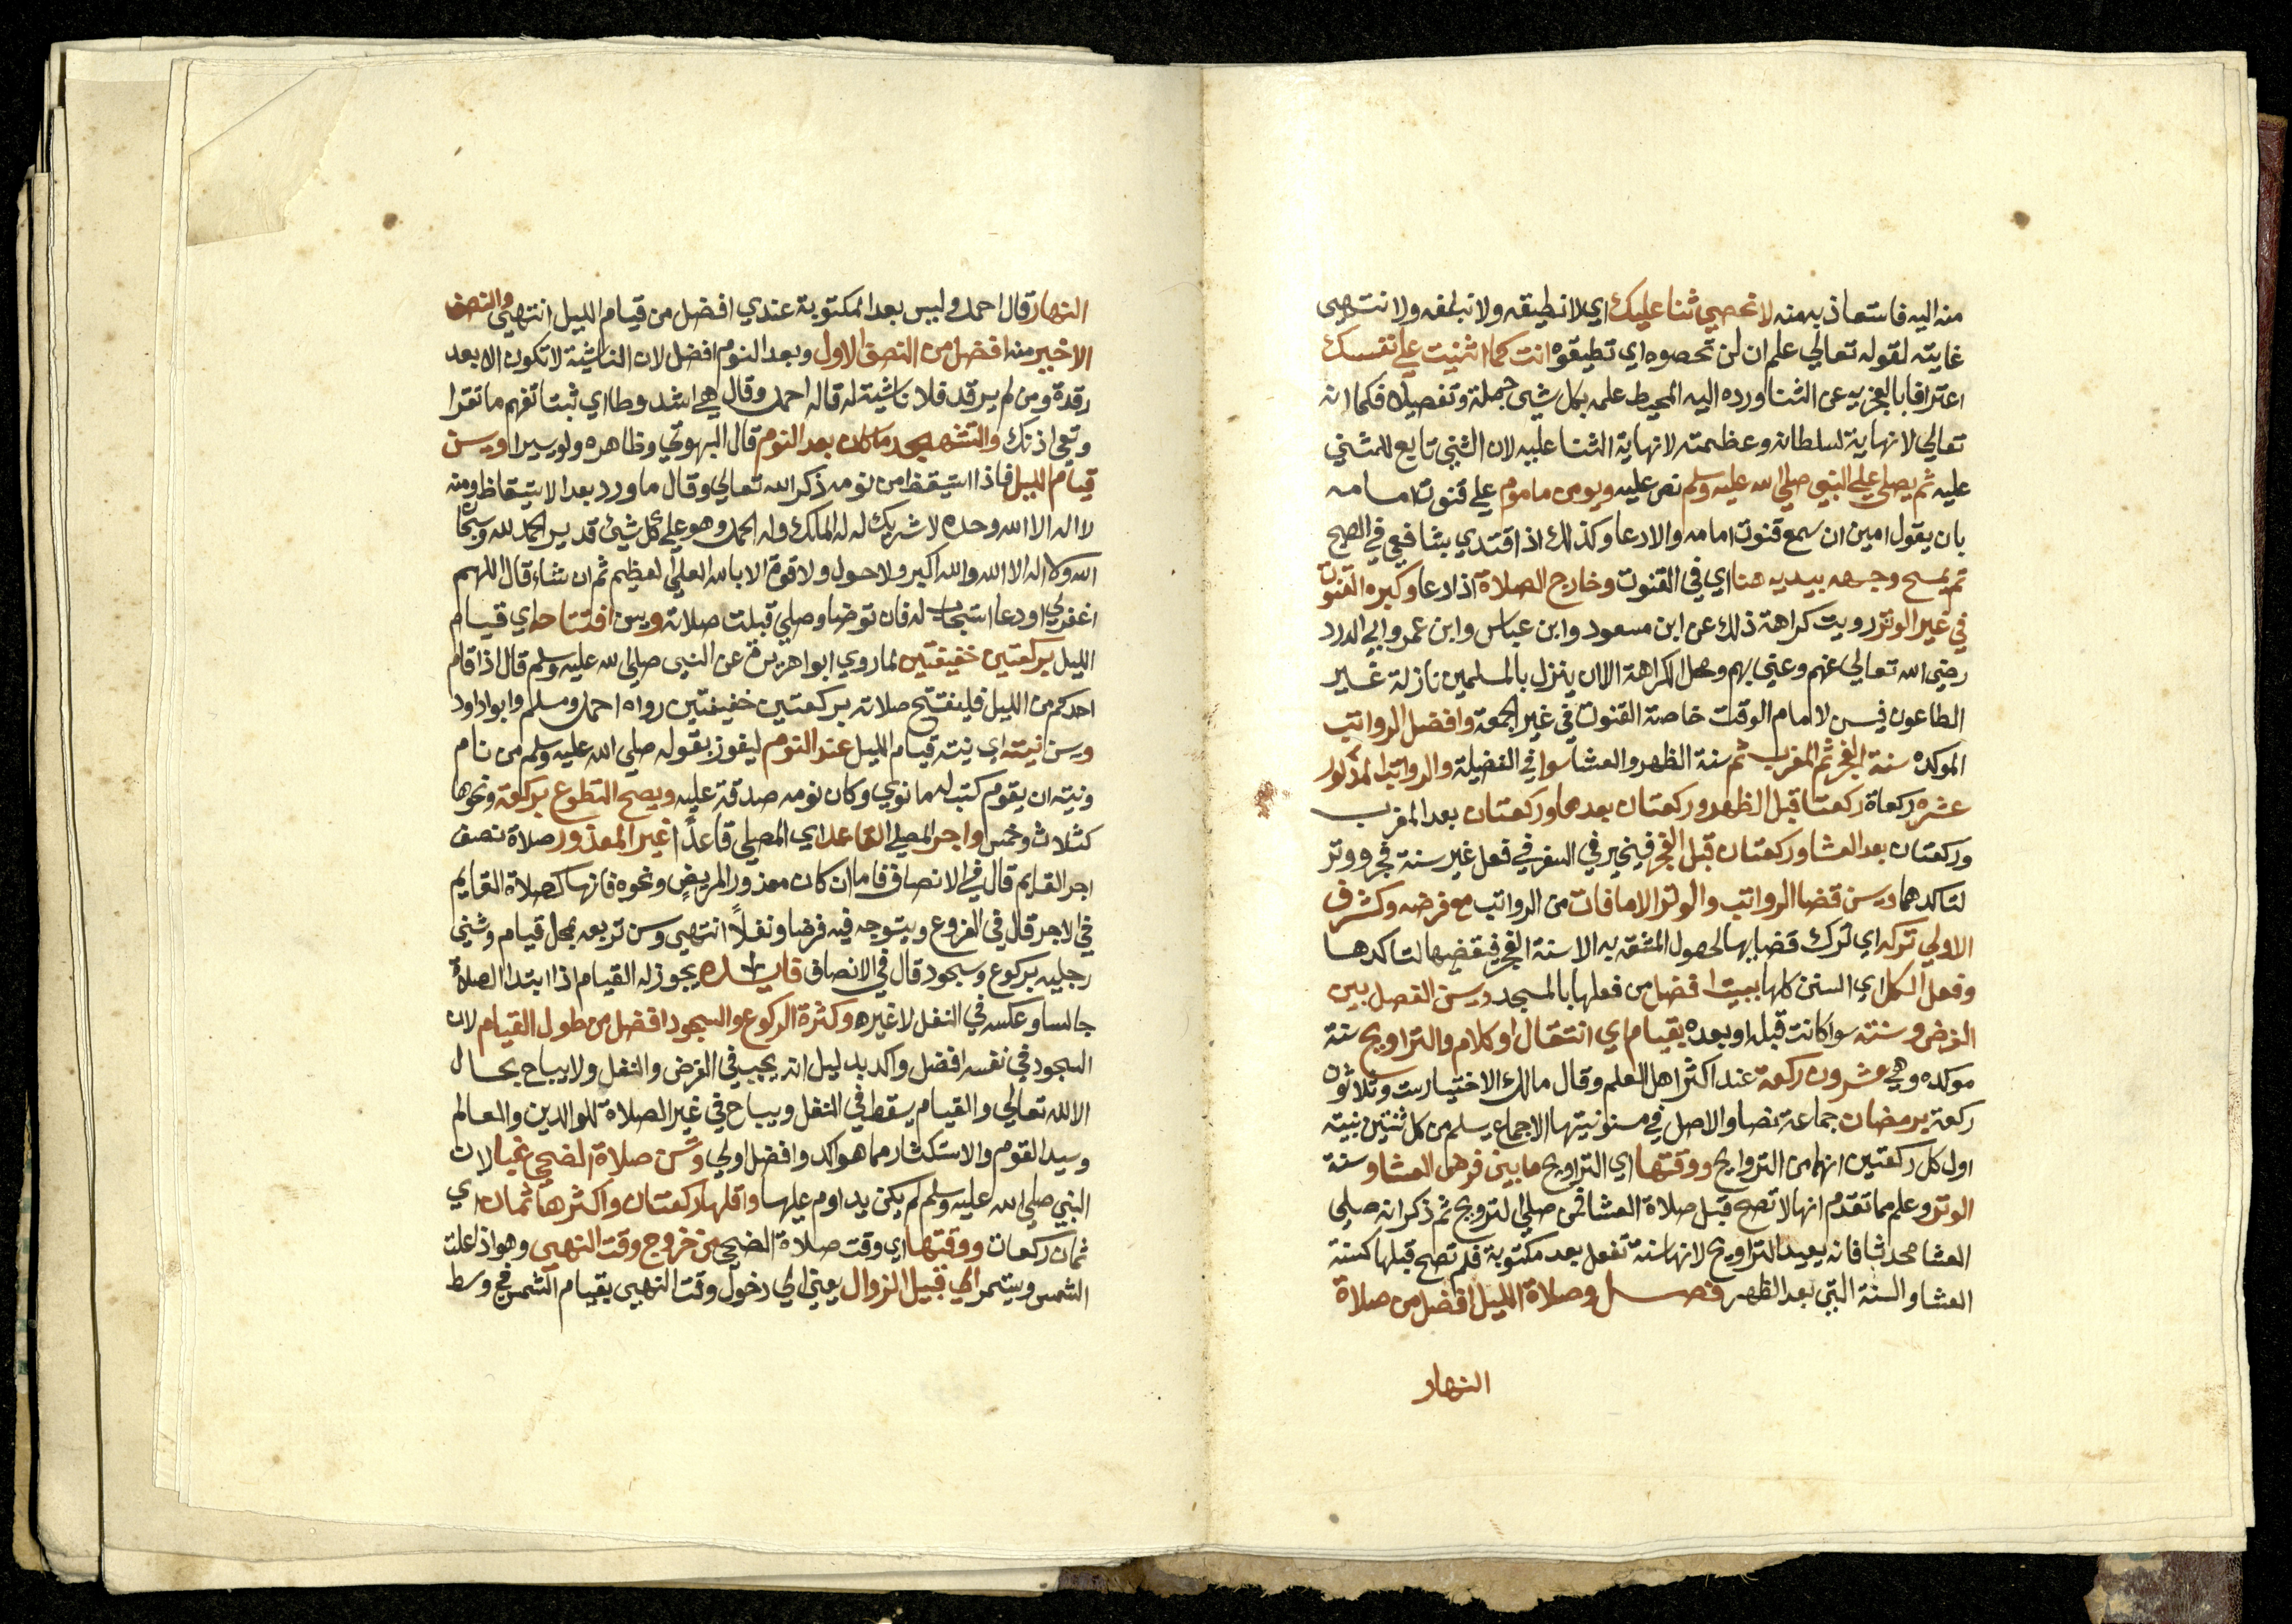 منه اليه فاستعاذ به منه لا نحصي ثنا عليك اي لا نطيقه ولا نبلغه ولا نتهى
غايته لقوله تعالي علم ان لن تحصوه اي تطيقوه انت كما اثنيت علي نفسك
اعترافا بالعجز به عن الثنا ورده اليه المحيط علمه بكل شيى جملة وتفصيلا فكما انه
تعالي لا نهاية لسلطانه وعظمته لا نهاية الثنا عليه لان الثني تابع للمثني
عليه ثم يصلي علي النبي صلي الله عليه وسلم نص عليه ويومن ماموم علي قنوت امامه
بان يقول امين ان سمع قنوت امامه والا دعا وكذلك اذا اقتدي بشافعي في الصبح
ثم يمسح وجهه بيديه هنا اي في القنوت وخارج الصلاة اذا دعا وكره القنوت
في غير الوتر رويت كراهة ذلك عن ابن مسعود وابن عباس وابن عمر وابي الدرد
رضي الله تعالي عنهم وعني بهم ومحل الكراهة الا ان ينزل بالمسلمين نازلة غير
الطاعون فيسن لامام الوقت خاصة القنوت في غير الجمعة وافضل الرواتب
الموكده سنة الفجر ثم المغرب ثم سنة الظهر والعشا سوا في الفضيلة والرواتب المذكور
عشره ركعاة ركعتا قبل الظهر وركعتان بعدهما وركعتان بعد المغرب
وركعتان بعد العشا وركعتان قبل الفجر فيخير في السفر في فعل غير سنة فجر ووتر
لتاكدهما ويسن قضا الرواتب والوتر الا ما فات من الرواتب مع فرضه وكثر ف
الاولي تركه اي ترك قضايها لحصول المشقة به الا سنة الفجر فيقضيها لتاكدها
وفعل الكل اي السنن كلها ببيت افضل من فعلها بالمسجد ويسن الفصل بين
الفرض وسنته سوا كانت قبله او بعده بقيام اي انتقال او كلام والتراويح سنة
موكده وهي عشرون ركعة عند اكثر اهل العلم وقال مالك الاختيار ست وثلاثون
ركعة برمضان جماعة نصا والاصل في مسنونيتها الاجماع يسلم من كل ثنتين بنية
اول كل ركعتين انهما من التراويح ووقتها اي التراويح ما بين فرض العشا وسنة
الوتر وعلم مما تقدم انها لا تصح قبل صلاة العشا فمن صلي التراويح ثم ذكر انه صلي
العشا محدثا فانه يعيد التراويح لانها سنة تفعل بعد مكتوبة فلم تصح قبلها كسنة
العشا والسنة التي بعد الظهر فصل وصلاة الليل افضل من صلاة
النهار
النهار قال احمد وليس بعد المكتوبة عندي افضل من قيام الليل انتهي والنصف
الاخير منه افضل من النصف الاول وبعد النوم افضل لان الناشئة لا تكون الا بعد
رقدة ومن لم يرقد فلا ناشئة له قاله احمد وقال هي اشد وطا اي ثبتا تفهم ما تقرا
وتعي اذنك والتهجد ما كان بعد النوم قال البهوتي وظاهره ولو يسيرا ويسن
قيام الليل فاذا استيقظ من نومه ذكر الله تعالي وقال ما ورد بعد الاستيقاظ ومنه
لا اله الا الله وحده لا شريك له له الملك وله الحمد وهو علي كل شيئ قدير الحمد لله وسبحان
الله ولا اله الا الله والله اكبر ولا حول ولا قوة الا بالله العلي العظيم ثم ان شاء قال اللهم
اغفرلي او دعا استجاب له فان توضا وصلي قبلت صلاته ويسن افتتاحه اي قيام
الليل بركعتين خفيفتين لما روي ابوا هريرة عن النبي صلي الله عليه وسلم قال اذا قام
احدكم من الليل فليفتتح صلاته بركعتين خفيفتين رواه احمد ومسلم وابوا داود
ويسن نيته اي نية قيام الليل عند النوم ليفوز بقوله صلي الله عليه وسلم من نام
ونيته ان يقوم كتب له ما نوي وكان نومه صدقة عليه ويصح التطوع بركعة ونحوها
كثلاث وخمس واجر المصلي القاعد اي المصلي قاعدًا غير المعذور صلاة نصف
اجر القايم قال في الانصاف فاما ان كان معذور المريض ونحوه فانها كصلاة القايم
في الاجر قال في الفروع ويتوجه فيه فرضا ونفلاً انتهي وسن تربعه بمحل قيام وثني
رجليه بركوع وسجود قال في الانصاف فايده يجوز له القيام اذا ابتدا الصلاة
جالسا وعكسه في النفل لا غيره وكثرة الركوع والسجود افضل من طول القيام لان
السجود في نفسه افضل واكد بدليل انه يجب في الفرض والنفل ولا يباح بحال
الا لله تعالي والقيام يسقط في النفل ويباح في غير الصلاة للوالدين والعالم
وسيد القوم والاستكثار مما هو اكد وافضل اولي وتسن صلاة الضحي غبا لان
النبي صلي الله عليه وسلم لم يكن يداوم عليها واقلها ركعتان واكثرها ثمان اي
ثمان ركعات ووقتها اي وقت صلاة الضحي من خروج وقت النهي وهو اذا علت
الشمس ويستمر الي قبيل الزوال يعني الي دخول وقت النهي بقيام الشمس في وسط